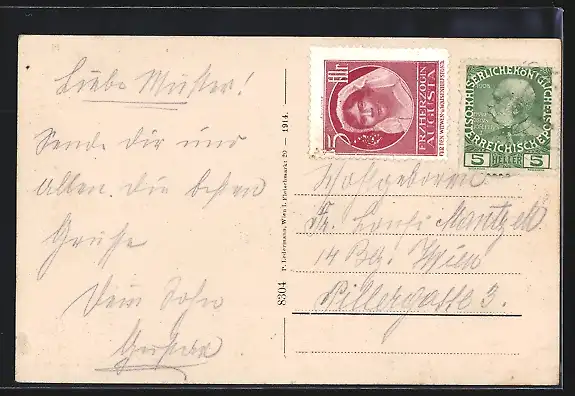 Liebe Mutter!
Sende dir und
Allen die besten
Grüsse
Dein Sohn
Gustav
8304 P. Ledermann, Wien I. Fleischmarkt 20 — 1914.
5 Hlr
ERZHERZOGIN
AUGUSTA
FÜR DEN WITWEN- u. WAISENHILFSFOND
KAISERLICHE KÖNIGLICHE
ÖSTERREICHISCHE POST
1908
5 HELLER 5
Wohlgeboren
Fr. Louise
14 Bez. Wien
Pillergasse 3.